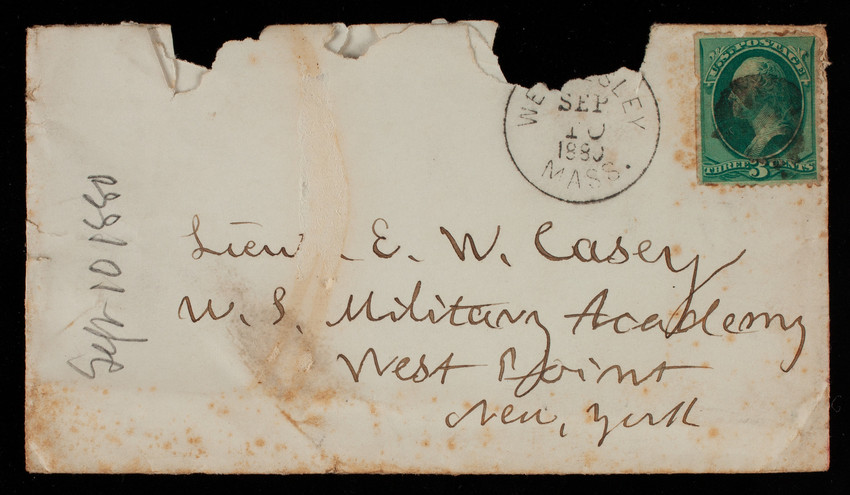 U.S. POSTAGE
THREE 3 CENTS
SEP
10
1880
MASS.
Sept 10 1880
Lieu. E. W. Casey
U. S. Military Academy
West Point
New, York